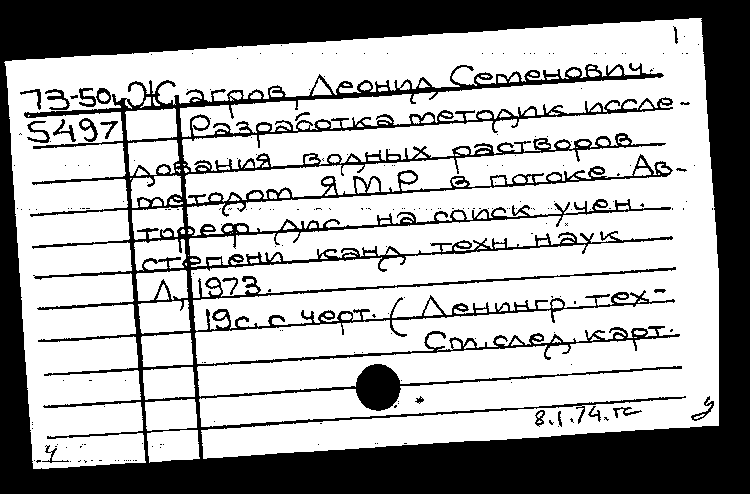 1
73-50ч Жагров, Леонид Семенович.
5497 Разработка методик иссле-
дования водных растворов
методом Я.М.Р. в потоке. Ав-
тореф. дис. на соиск учен.
степени канд. техн. наук
Л., 1973.
19с. с черт. (Ленингр. тех-
См. след. карт.
8.1.74.гс
у
ч